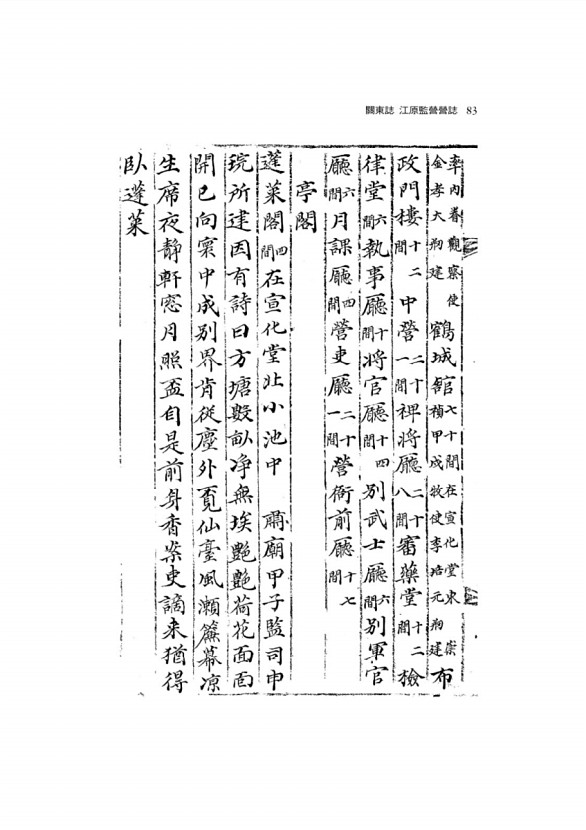 關東誌 江原監營營誌 83
率內眷觀察使金孝大刱建 鶴城館七十間在宣化堂東 崇禎甲戌牧使李培元刱建 布
政門樓十二間 中營二十一間 裨將廳二十八間 審藥堂十二間 檢
律堂六間 執事廳十間 將官廳十四間 別武士廳六間 別軍官
廳六間 月課廳四間 營吏廳二十一間 營衙前廳十七間
亭閣
蓬萊閣四間 在宣化堂北小池中 肅廟甲子監司申
琓所建因有詩曰方塘數畝净無埃艶艶荷花面面
開已向寰中成別界肯從塵外覓仙臺風瀬簾幕凉
生席夜靜軒窓月照盃自是前身香案吏謫来猶得
臥蓬萊